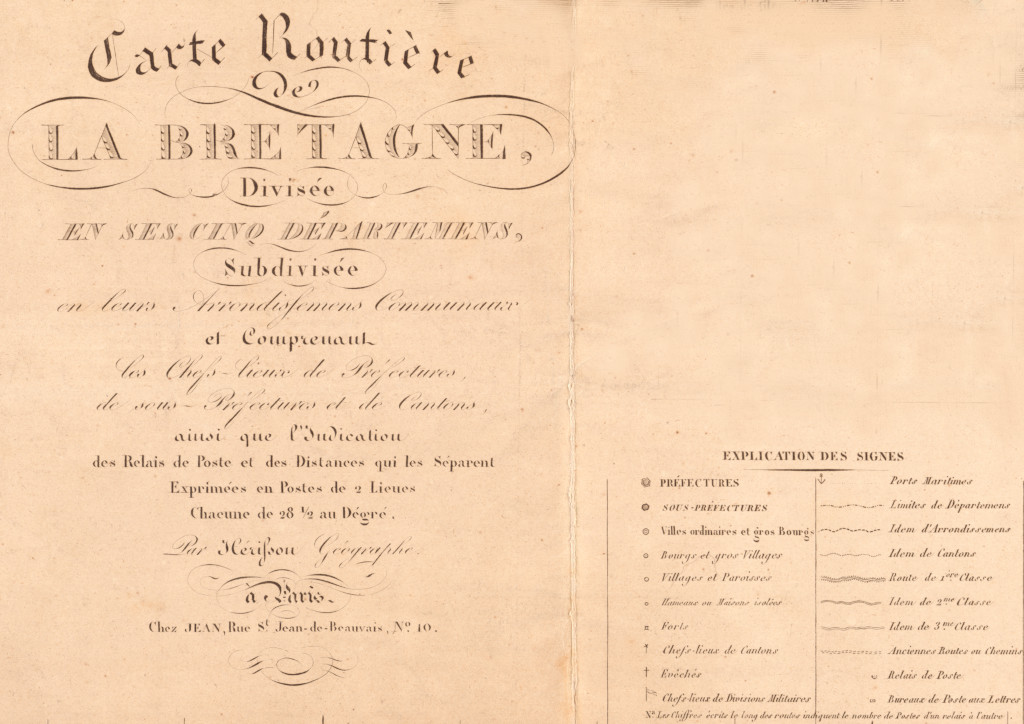 Carte Routière
de
LA BRETAGNE,
Divisée
EN SES CINQ DÉPARTEMENS,
Subdivisée
en leurs Arrondiſsemens Communaux
et Comprenant
les Chefs-lieux de Préfectures,
de sous-Préfectures et de Cantons,
ainsi que l'Indication
des Relais de Poste et des Distances qui les Séparent
Exprimées en Postes de 2 Lieues
Chacune de 28 ½ au Dégré.
Par Hériſson Géographe.
à Paris.
Chez JEAN, Rue St. Jean-de-Beauvais, No. 10.
EXPLICATION DES SIGNES
PRÉFECTURES
SOUS-PRÉFECTURES
Villes ordinaires et gros Bourgs
Bourgs et gros Villages
Villages et Paroisses
Hameaux ou Maisons isolées
Forts
Chefs-lieux de Cantons
Evêchés
Chefs-lieux de Divisions Militaires
Ports Maritimes
Limites de Départemens
Idem d'Arrondissemens
Idem de Cantons
Route de 1ère Classe
Idem de 2me Classe
Idem de 3me Classe
Anciennes Routes ou Chemins
Relais de Poste
Bureaux de Poste aux Lettres
Na. Les Chiffres écrits le long des routes indiquent le nombre de Postes d'un relais à l'autre.